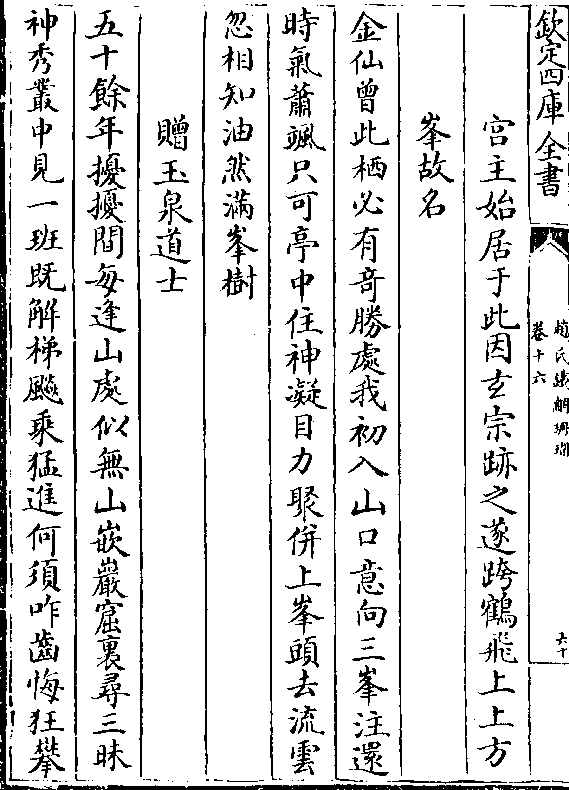 欽定四庫全書
趙氏鐵網珊瑚
卷十六
六十
宫主始居于此因玄宗跡之遂跨鶴飛上上方
峯故名
金仙曾此栖必有竒勝處我初入山口意向三峯注還
時氣蕭颯只可亭中住神凝目力聚併上峯頭去流雲
忽相知油然滿峯樹
贈玉泉道士
五十餘年擾擾間每逢山處似無山嵌巖窟裏尋三昧
神秀叢中見一班既解梯飈乘猛進何須咋齒悔狂攀